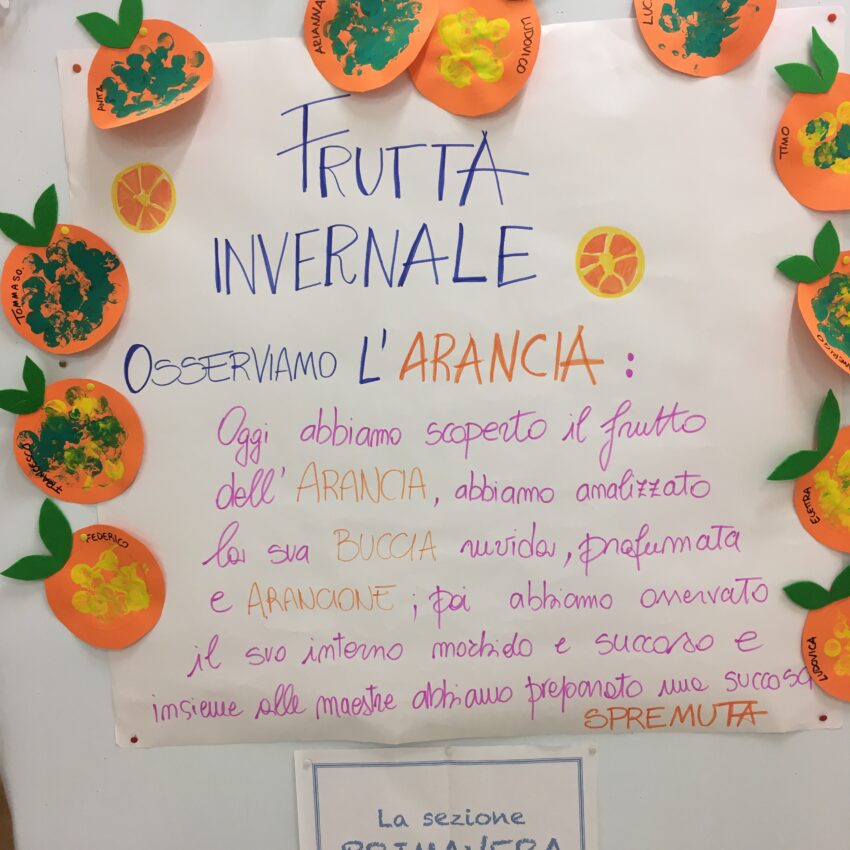 ANITA
ARIANNA
LUDOVICO
LUC
TIMO
TOMMASO
FRANCESCO
FEDERICO
ELETTRA
LUDOVICA
FRUTTA
INVERNALE
OSSERVIAMO L'ARANCIA:
Oggi abbiamo scoperto il frutto
dell'ARANCIA, abbiamo analizzato
la sua BUCCIA ruvida, profumata
e ARANCIONE; poi abbiamo osservato
il suo interno morbido e succoso e
insieme alle maestre abbiamo preparato una succosa
SPREMUTA
La sezione
PRIMAVERA